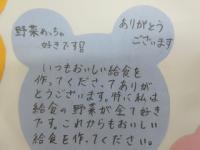 野菜めっちゃ
好きです!!
ありがとう
ございます
いつもおいしい給食を
作ってくださってありが
とうございます。特に私は
給食の野菜が全て好き
です。これからもおいしい
給食を作ってください。